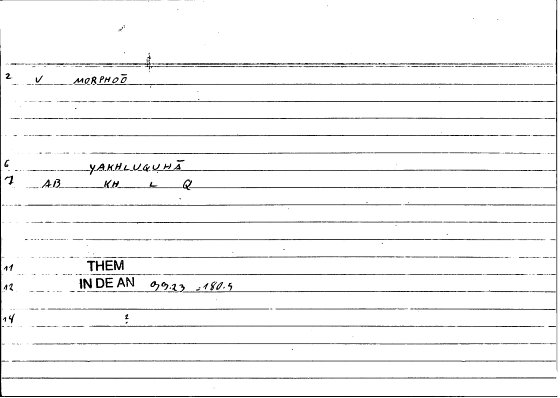 2 V MORPHOŌ
6 YAKHLUQUHĀ
7 AB KH L Q
11 THEM
12 IN DE AN 99.23 = 180.5
14 ?